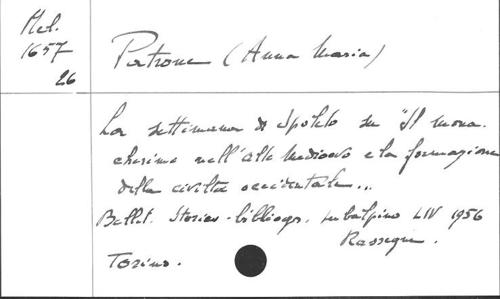 Mel.
1657
26
Petrone (Anna Maria)
La settimana di Spoleto su "Il mona-
chesimo nell'alto Medioevo e la formazione
della civiltà occidentale...
Bollet. Storico-bibliogr. subalpino LIV 1956
Rassegne.
Torino.